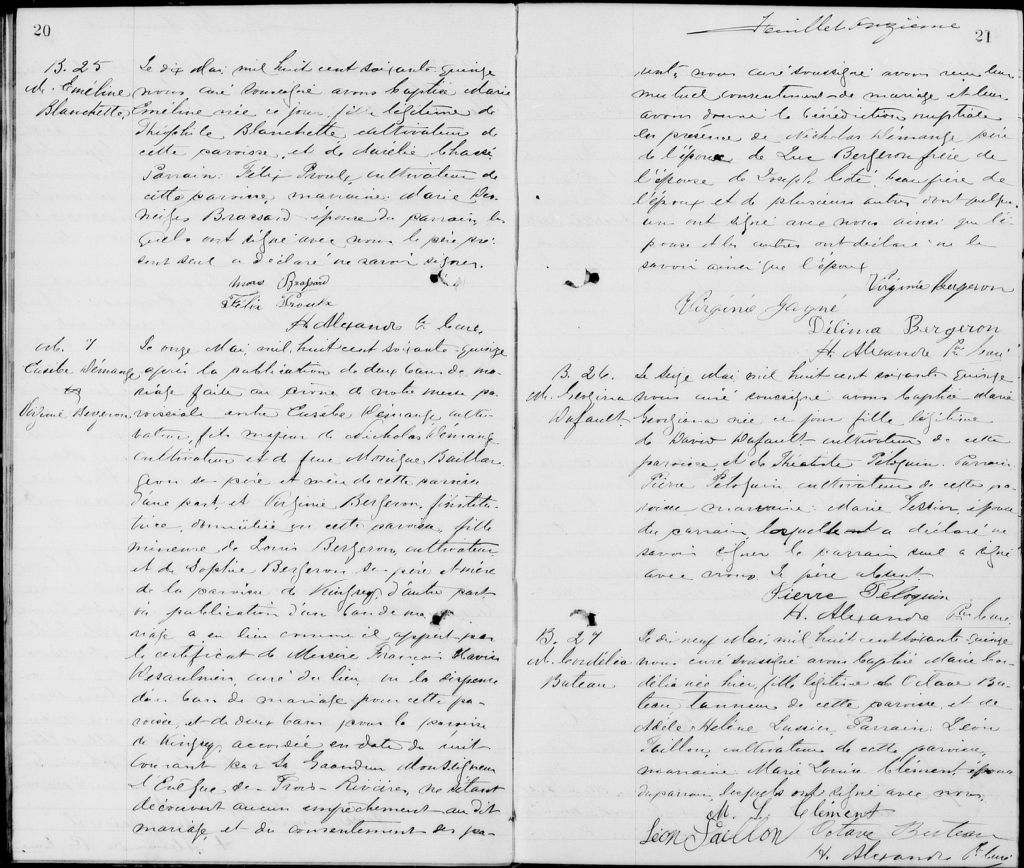 20
B. 25
M. Eméline
Blanchette
Le dix Mai mil huit cent soixante quinze
nous curé soussigné avons baptisé Marie
Eméline née ce jour fille légitime de
Théophile Blanchette cultivateur de
cette paroisse et de Aurélie Chassé
Parrain: Félix Proulx, cultivateur de
cette paroisse, marraine: Marie Des
neiges Brassard épouse du parrain, les
quels ont signé avec nous le père pré-
sent seul a déclaré ne savoir signer.
Félix Proulx
H. Alexandre Ptre Curé
M. 7
Eusèbe Démange
&
Virginie Bergeron
Le onze Mai, mil huit cent soixante quinze
après la publication de deux bans de ma-
riage faite au prône de notre messe pa-
roissiale entre Eusèbe Démange culti-
vateur, fils majeur de Nicholas Démange
cultivateur et de feue Monique Baillar-
geon ses père et mère de cette paroisse
d'une part, et Virginie Bergeron, institu-
trice, domiciliée en cette paroisse, fille
mineure de Louis Bergeron, cultivateur
et de Sophie Bergeron ses père et mère
de la paroisse de Kingsey d'autre part
vu publication d'un ban de ma-
riage a eu lieu comme il appert par
le certificat de Messire François Xavier
Desaulniers, curé du lieu, vu la dispense
d'un ban de mariage pour cette pa-
roisse, et de deux bans pour la paroisse
de Kingsey, accordée en date du huit
courant par Sa Grandeur Monseigneur
l'Evêque des Trois-Rivières, ne s'étant
découvert aucun empêchement au dit
mariage, et du consentement des pa-
Feuillet onzième
21
rents, nous curé soussigné avons reçu leur
mutuel consentement de mariage et leur
avons donné la bénédiction nuptiale
en présence de Nicholas Démange père
de l'époux de Luc Bergeron frère de
l'épouse de Joseph Coté beaufrère de
l'époux et de plusieurs autres dont quelques
uns ont signé avec nous ainsi que l'é-
pouse et les autres ont déclaré ne le
savoir ainsi que l'époux
Virginie Bergeron
Virginie Gagné
Délima Bergeron
H. Alexandre Ptre Curé
B. 26.
M. Georgina
Dufault
Le seize Mai mil huit cent soixante quinze
nous curé soussigné avons baptisé Marie
Georgiana née ce jour fille légitime
de David Dufault cultivateur de cette
paroisse et de Théotiste Péloquin. Parrain
Pierre Péloquin cultivateur de cette pa-
roisse marraine: Marie Tessier, épouse
du parrain laquelle a déclaré ne
savoir signer le parrain seul a signé
avec nous. Le père absent.
Pierre Péloquin
H. Alexandre Ptre Curé
B. 27
M. Cordélia
Buteau
Le dix neuf Mai mil huit cent soixante quinze
nous curé soussigné avons baptisé Marie Cor-
délia née hier, fille légitime de Octave Bu-
teau tanneur de cette paroisse et de
Adèle Hélène Lussier, Parrain: Léon
Paillon, cultivateur de cette paroisse,
marraine: Marie Louise Clément épouse
du parrain, lesquels ont signé avec nous,
M. L. Clément
Léon Paillon Octave Buteau
H. Alexandre Ptre Curé